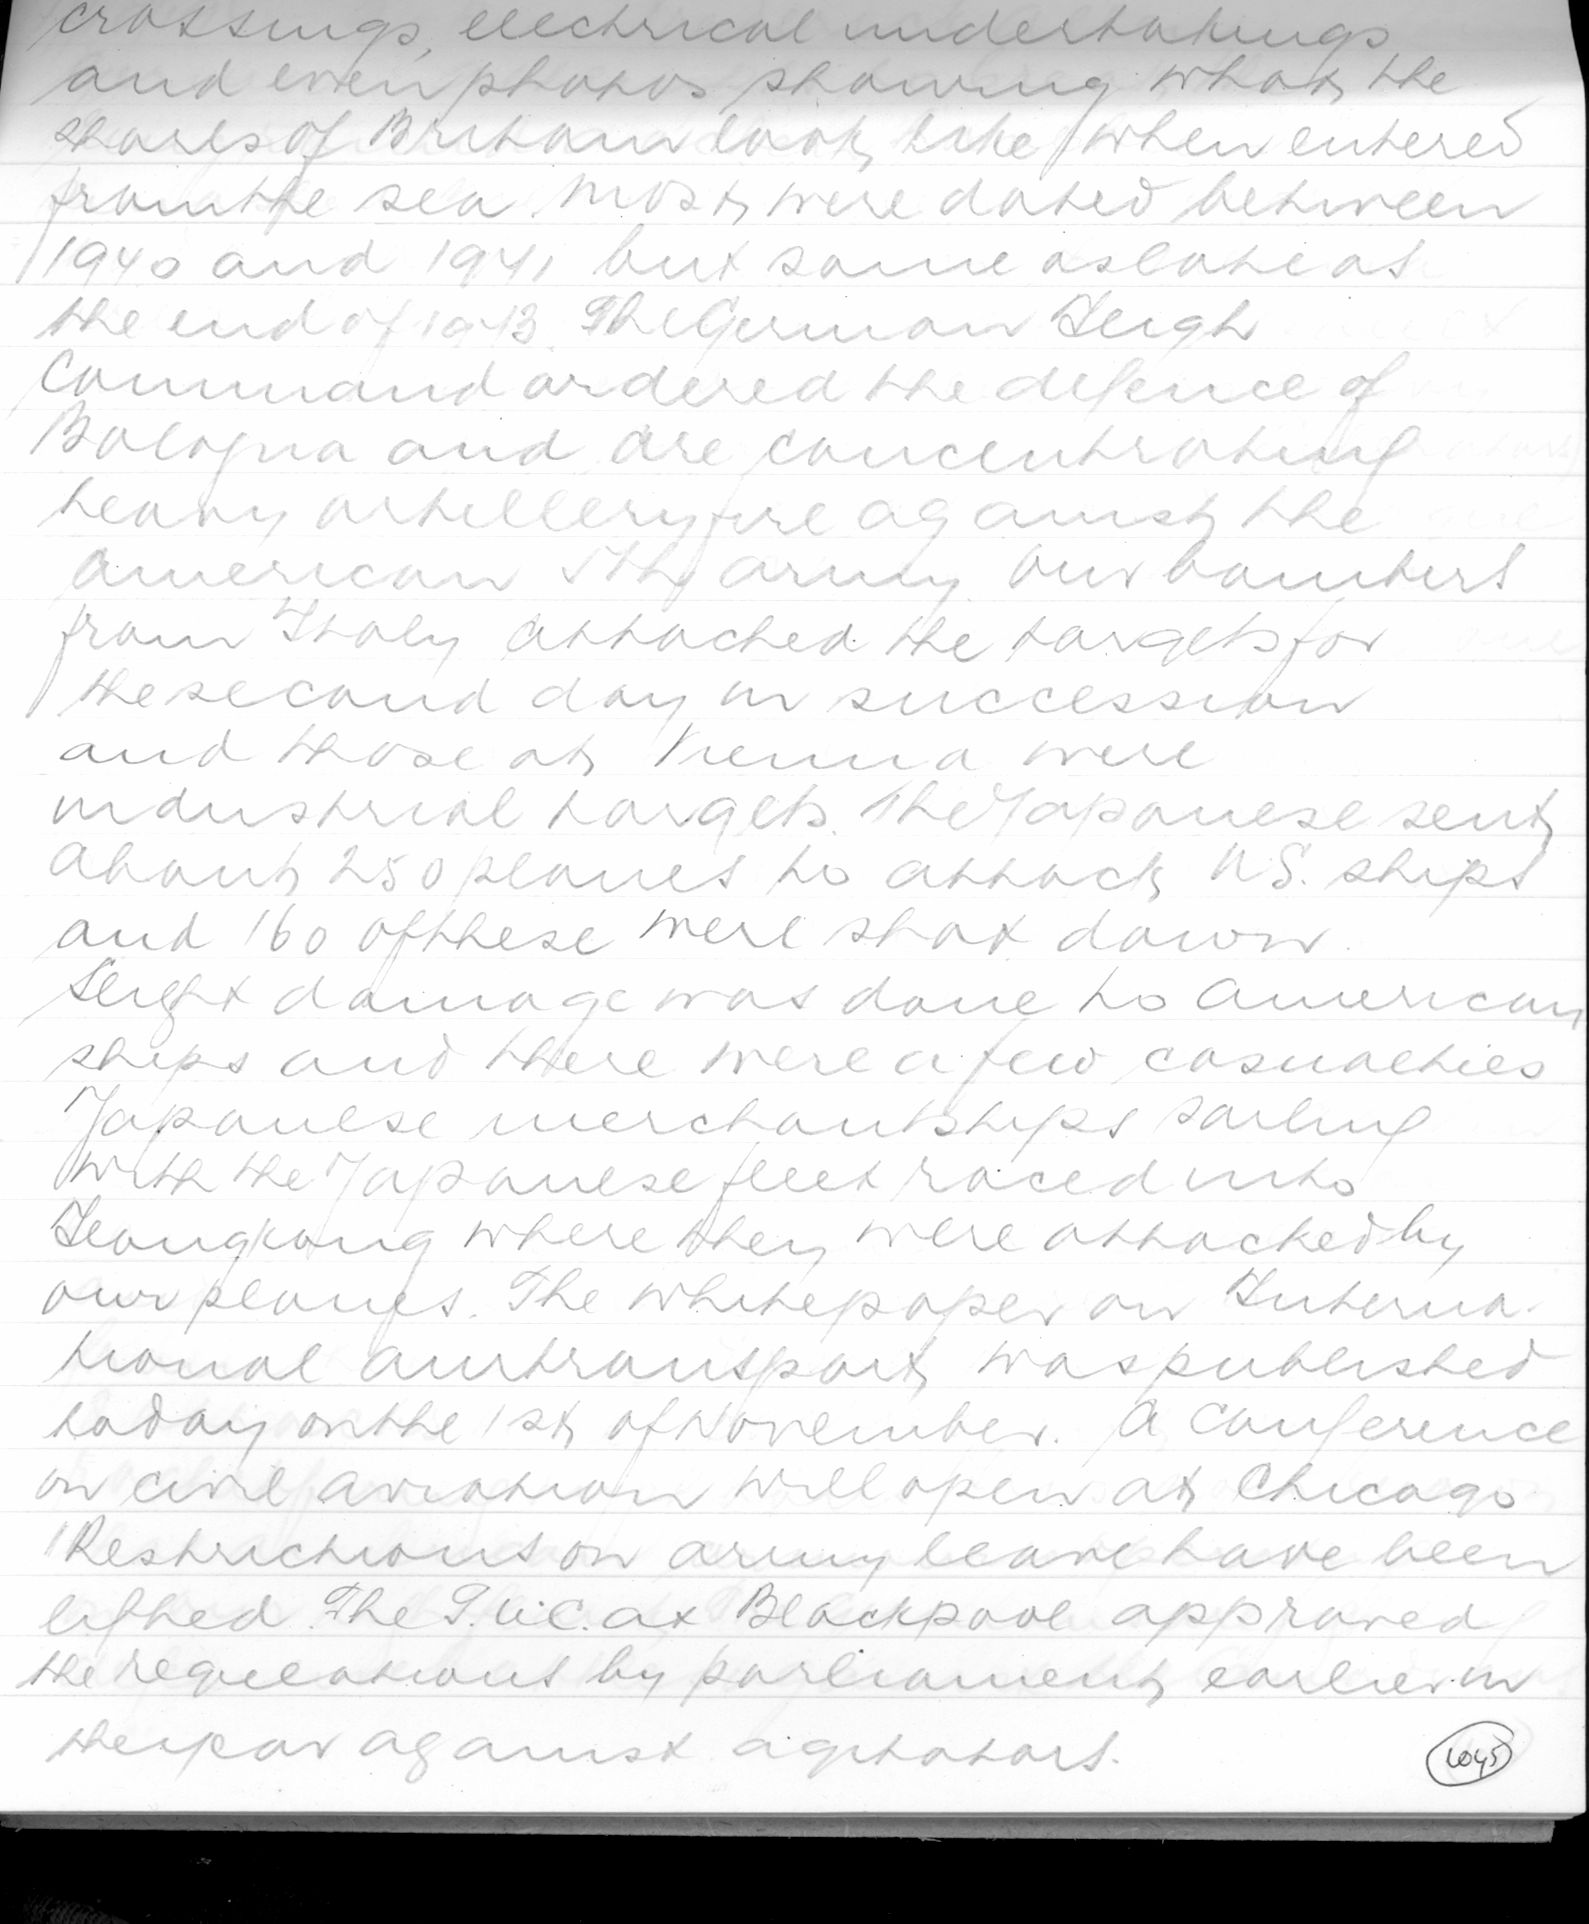 crossings, electrical undertakings
and even photos showing what the
shores of Britain look like when entered
from the sea. Most were dated between
1940 and 1941 but some as late as
the end of 1943. The German High
Command ordered the defence of
Bologna and are concentrating
heavy artillery fire against the
American 5th army. Our bombers
from Italy attacked the targets for
the second day in succession
and those at Vienna were
industrial targets. The Japanese sent
about 250 planes to attack U.S. ships
and 160 of these were shot down.
Slight damage was done to American
ships and there were a few casualties
Japanese merchantships sailing
with the Japanese fleet raced into
Hongkong where they were attacked by
our planes. The whitepaper on Interna-
tional airtransport was published
today on the 1st of November. A Conference
on civil aviation will open at Chicago
Restrictions on army leave have been
lifted. The T.U.C. at Blackpool approved
the regulations by parliament earlier in
the year against agitators.